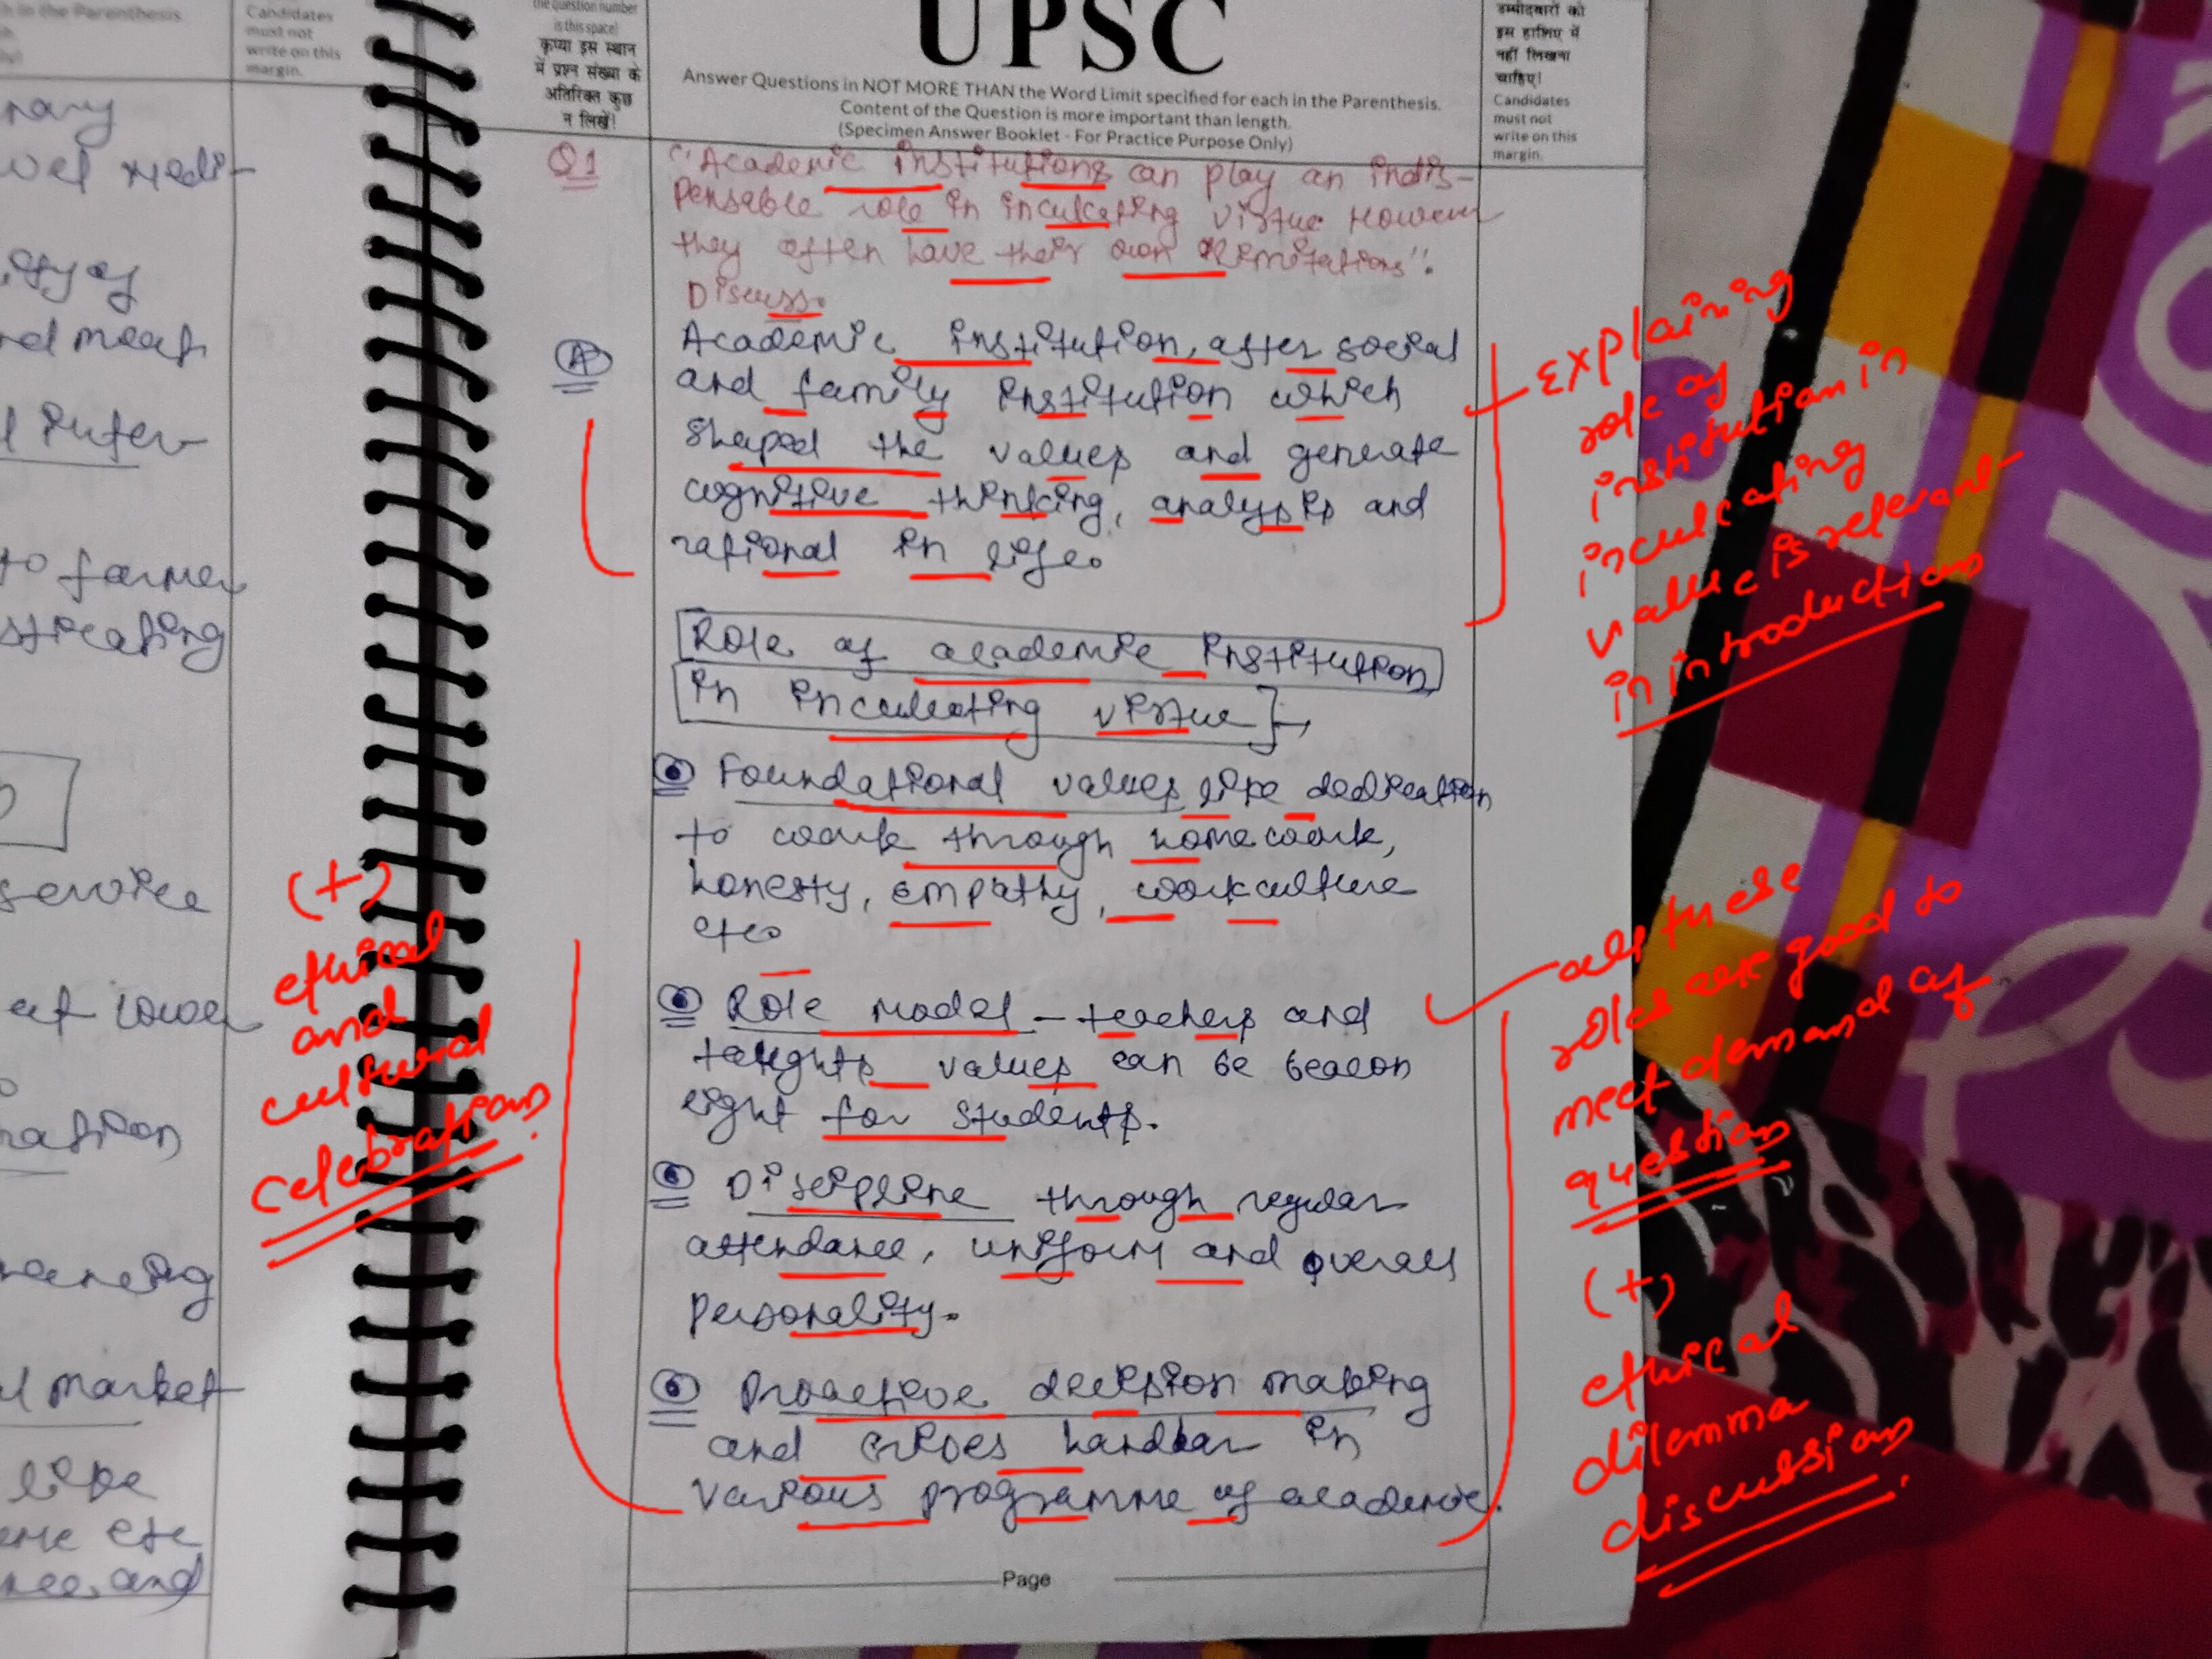 h in the Parenthesis
Candidates
must not
write on this
margin.
nary
vel medi-
ity of
nd meat
l inter-
to farmer
sticating
service
at lower
nation
l market
like
etc
and
(+)
ethical
and
cultural
celebrations.
the question number
is this space)
कृप्या इस स्थान
में प्रश्न संख्या के
अतिरिक्त कुछ
न लिखें!
UPSC
Answer Questions in NOT MORE THAN the Word Limit specified for each in the Parenthesis.
Content of the Question is more important than length.
(Specimen Answer Booklet - For Practice Purpose Only)
उम्मीदवारों को
इस हाशिए में
नहीं लिखना
चाहिए!
Candidates
must not
write on this
margin.
Q1 "Academic institutions can play an indis-
pensable role in inculcating virtue However
they often have their own limitations".
Discuss.
(A) Academic institution, after social
and family institution which
shaped the values and generate
cognitive thinking, analysis and
rational in life.
Role of academic institution
in inculcating virtue
Foundational values like dedication
to work through homework,
honesty, empathy, work culture
etc.
Role model - teachers and
taughts values can be beacon
light for students.
Discipline through regular
attendance, uniform and overall
personality.
Proactive decision making
and crises handler in
various programme of academic.
Page
Explaining
role of
institution in
inculcating
value is relevant
in introduction
all these
roles are good to
meet demand of
question
(+)
ethical
dilemma
discussions.